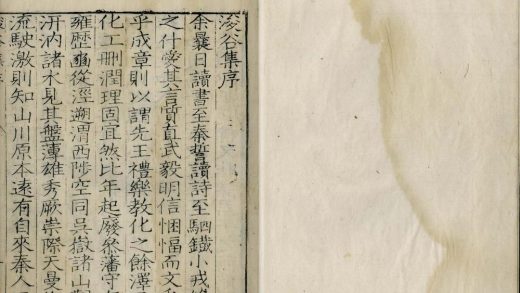 浚谷集序
余曩日讀書至秦誓讀詩至駟鐵小戎
之什愛其言質直武毅明信悃愊而文
乎成章則以謂先王禮樂教化之餘澤
化工刪潤理固宜然比年起廢叅藩守
雍歷豳從涇遡渭西陟空同呉嶽諸山
汧汭諸水見其盤薄雄秀厥崇際天曼
流駛激則知山川原本遠有自來秦人